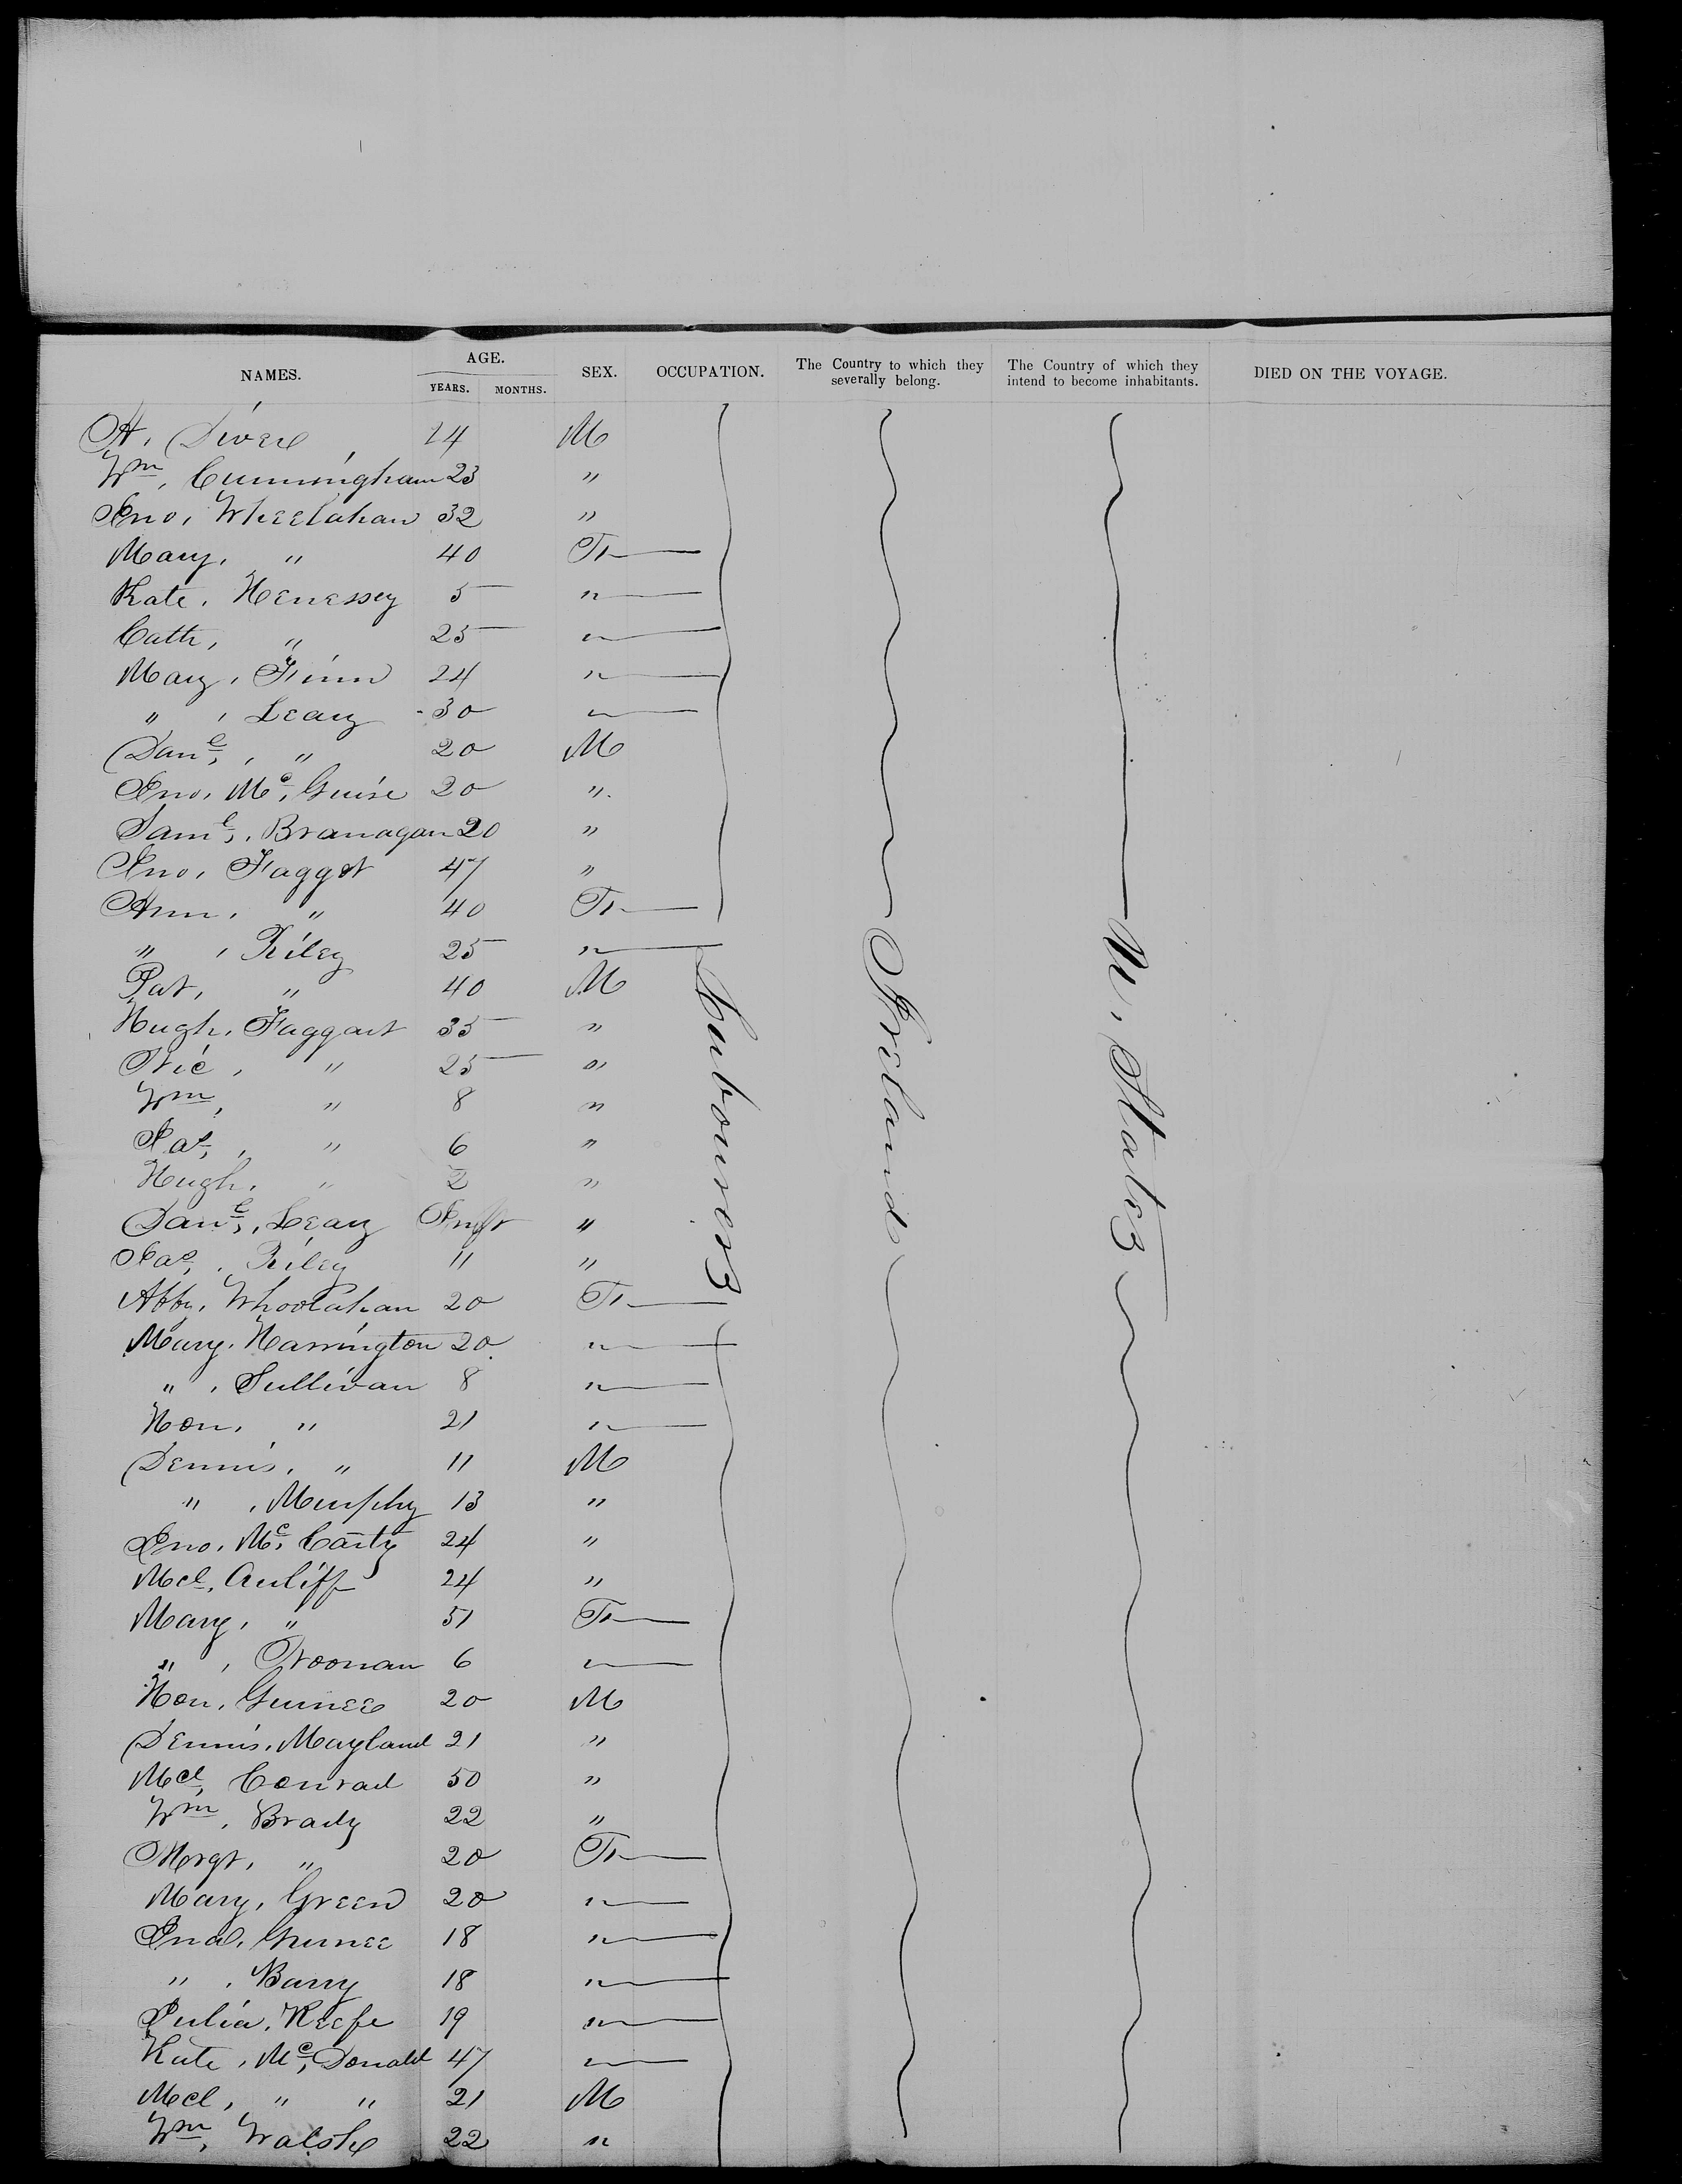 NAMES. AGE. SEX. OCCUPATION. The Country to which they severally belong. The Country of which they intend to become inhabitants. DIED ON THE VOYAGE.
YEARS. MONTHS.
A. Divere 24 M
Wm, Cunningham 23 "
Jno, Wheelahan 32 "
Mary, " 40 F
Kate, Henessey 5 "
Cath, " 25 "
Mary, Finn 24 "
" , Leary 30 "
Danl, " 20 M
Jno, Mc, Guire 20 "
Saml, Branagan 20 "
Jno, Faggot 47 "
Ann, " 40 F
" , Riley 25 "
Pat, " 40 M
Hugh, Faggart 35 "
Nic, " 25 "
Wm, " 8 "
Jas, " 6 "
Hugh, " 2 "
Danl, Leary Inft "
Jas, Riley 11 "
Abby, Whoolahan 20 F
Mary, Harrington 20 "
" , Sullivan 8 "
Hon, " 21 "
Dennis, " 11 M
" , Murphy 13 "
Jno, Mc, Carty 24 "
Mcl, Auliff 24 "
Mary, " 51 F
" , Noonan 6 "
Hon, Guinee 20 M
Dennis, Mayland 21 "
Mcl, Conrad 50 "
Wm, Brady 22 "
Mrgt, " 20 F
Mary, Green 20 "
Jna, Guinee 18 "
" , Barry 18 "
Julia, Keefe 19 "
Kate, Mc, Donald 47 "
Mcl, " " 21 M
Wm, Walshe 22 "
Labourers
Ireland
U. States